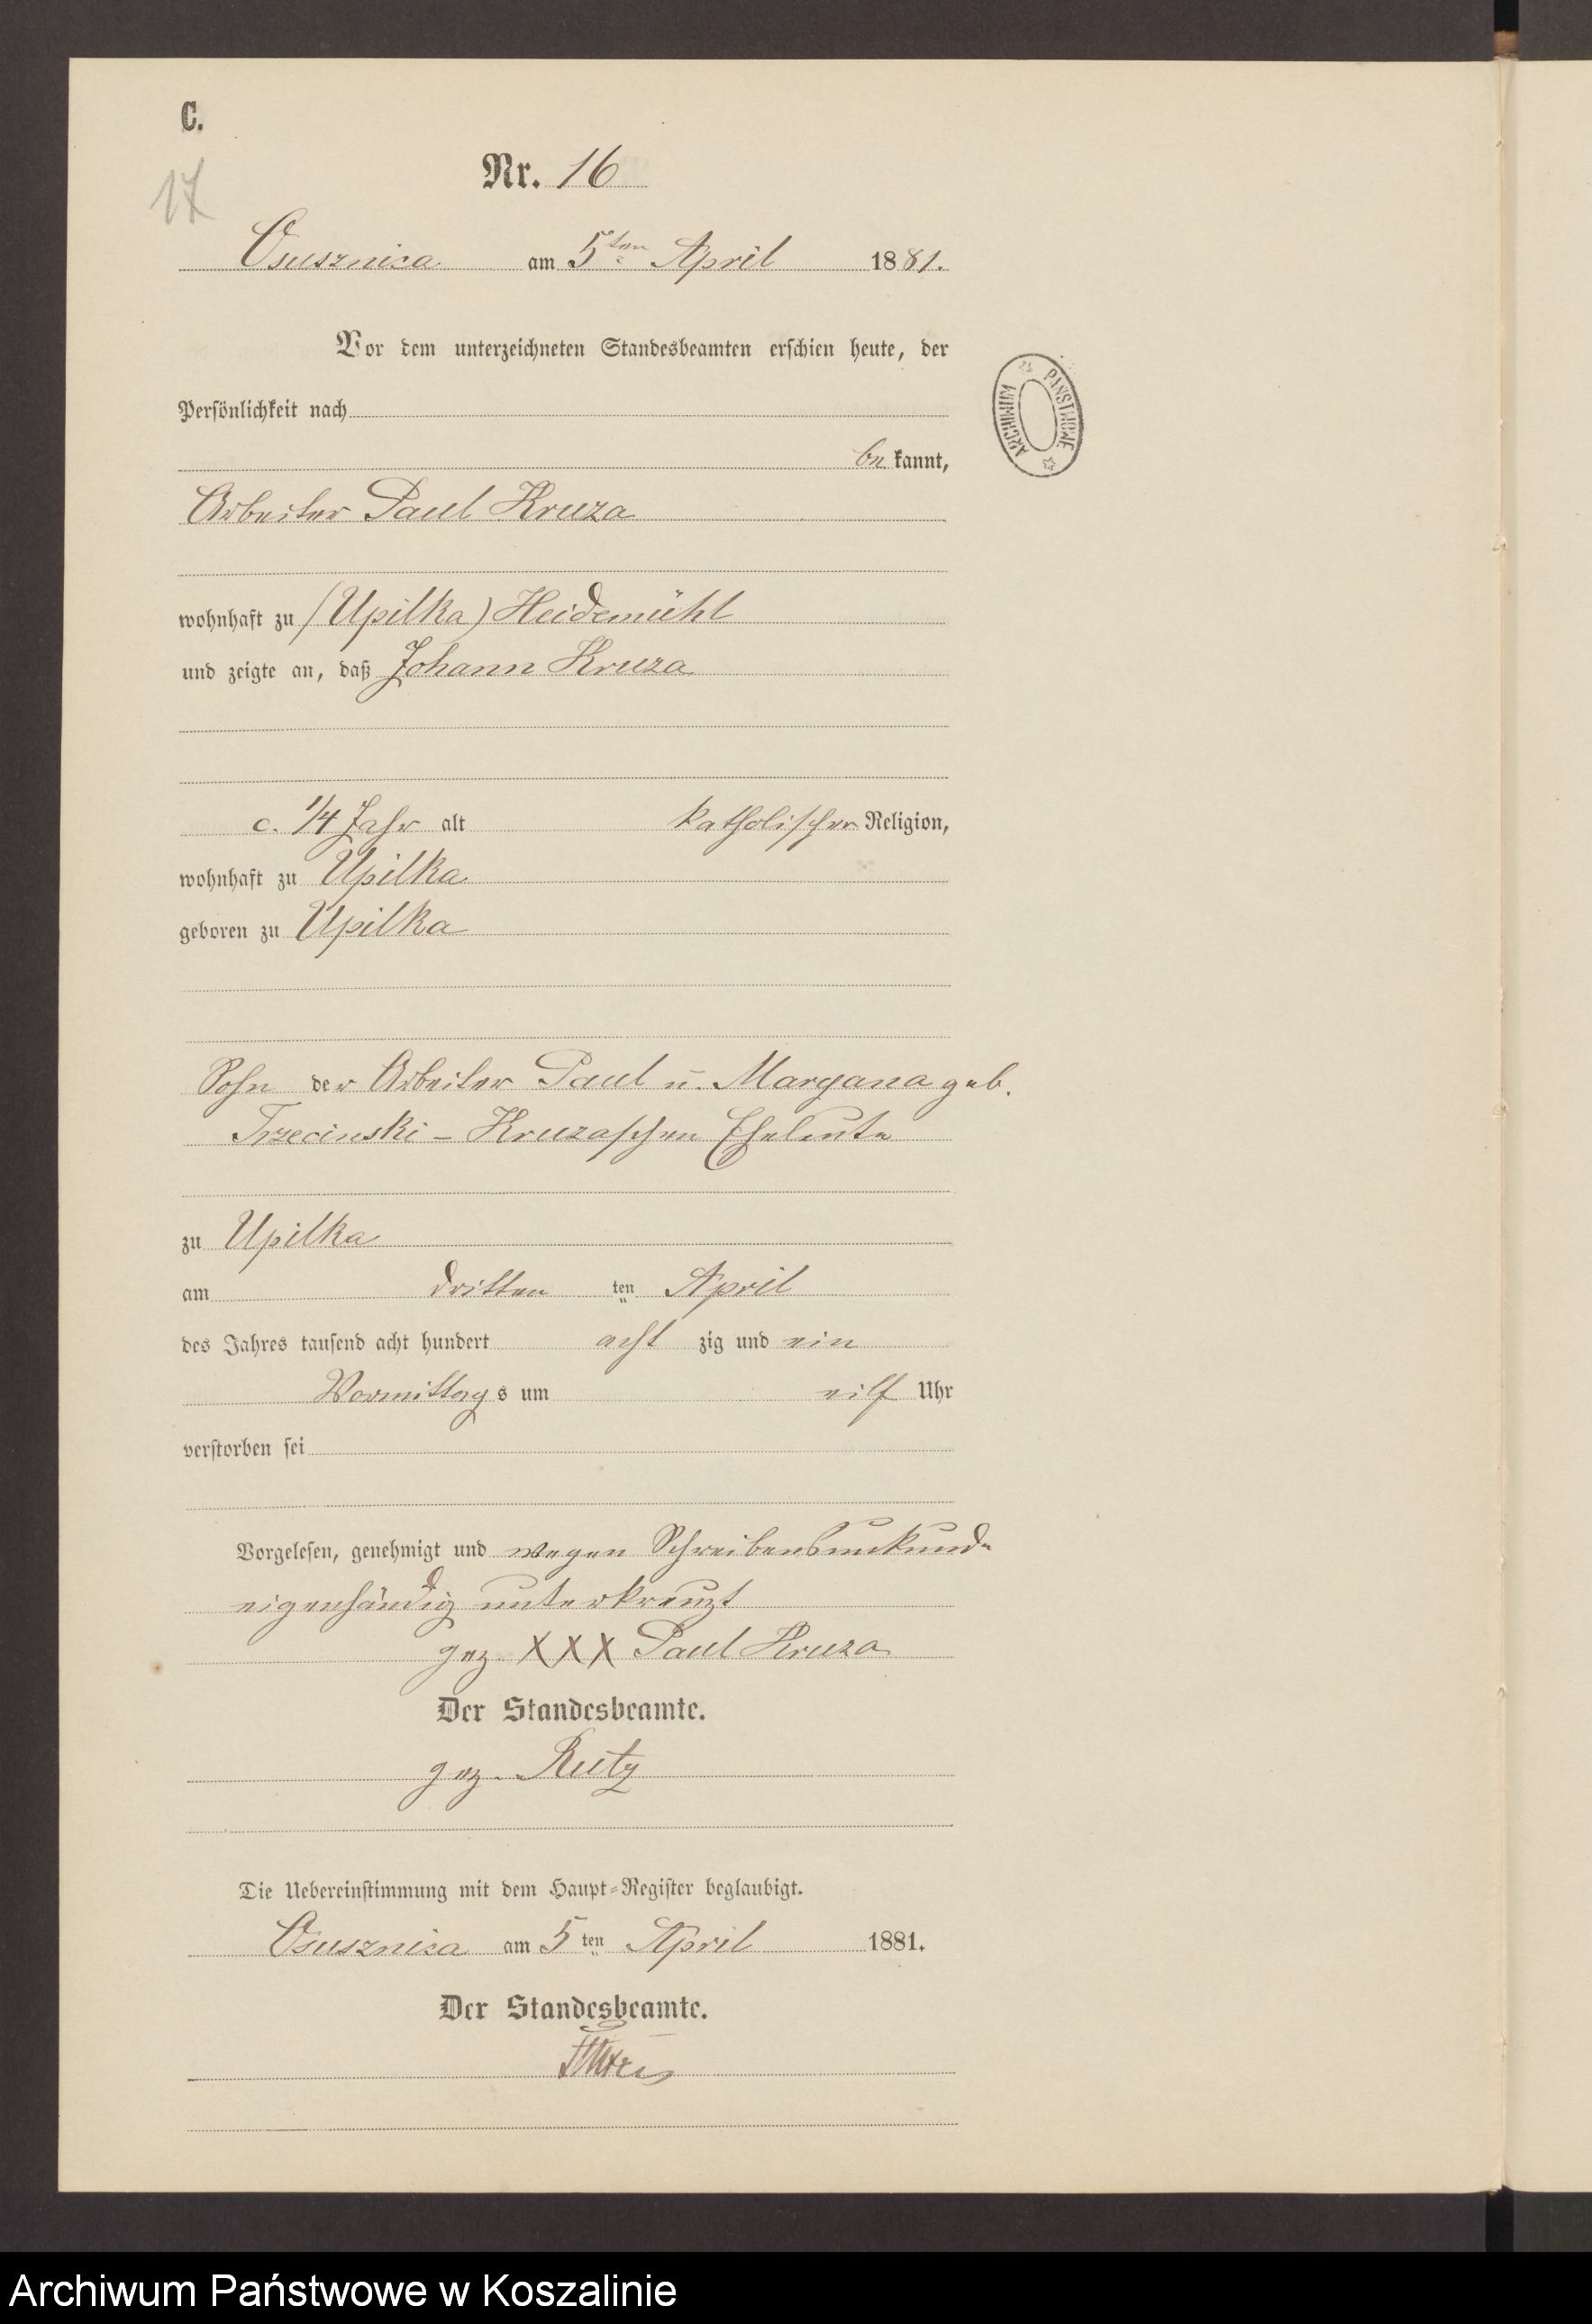 C.
17
Nr. 16
Osusznica am 5ten April 1881.
Vor dem unterzeichneten Standesbeamten erschien heute, der
Persönlichkeit nach
be kannt,
Arbeiter Paul Kruza
wohnhaft zu (Upilka) Heidemühl
und zeigte an, daß Johann Kruza
c. 1/4 Jahr alt katholischer Religion,
wohnhaft zu Upilka
geboren zu Upilka
Sohn der Arbeiter Paul u. Margana geb.
Trzecinski - Kruzaschen Eheleute
zu Upilka
am dritten ten April
des Jahres tausend acht hundert acht zig und ein
Vormittags um eilf Uhr
verstorben sei
Vorgelesen, genehmigt und wegen Schreibensunkunde
eigenhändig unterkreuzt
gez. XXX Paul Kruza
Der Standesbeamte.
gez. Rutz
Die Uebereinstimmung mit dem Haupt-Register beglaubigt.
Osusznica am 5 ten April 1881.
Der Standesbeamte.
ARCHIWUM PAŃSTWOWE
Archiwum Państwowe w Koszalinie